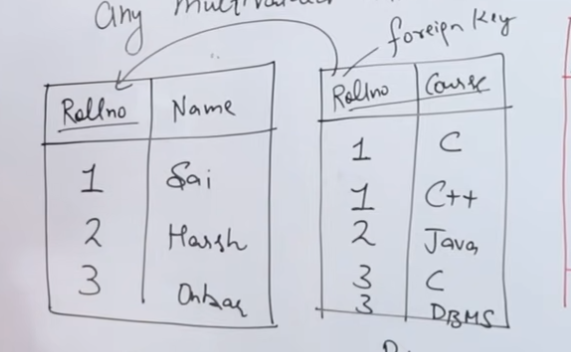 any
foreign key
Rollno Name
1 Sai
2 Harsh
3
Rollno Course
1 C
1 C++
2 Java
3 C
3 DBMS